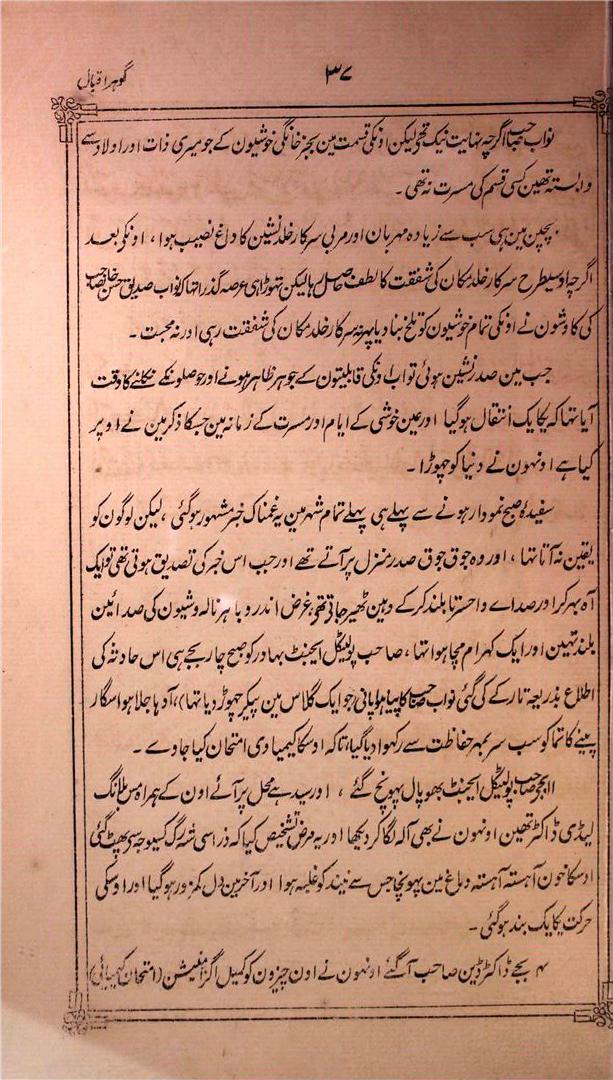 گوہر اقبال
۳۷
نواب صاحب اگرچہ نہایت نیک تھے لیکن اونکی قسمت مین بجز خانگی خوشیون کے جو میری ذات اور اولاد سے
وابستہ تھین کسی قسم کی مسرت نہ تھی ۔
بچپن مین ہی سب سے زیادہ مہربان اور مربی سرکار خلد نشین کا داغ نصیب ہوا ، اونکی بعد
اگرچہ اوسیطرح سرکار خلد مکان کی شفقت کا لطف حاصل رہا لیکن تھوڑا ہی عرصہ گذرا تھا کہ نواب صدیق حسن خانصاحب
کی کاوشون نے اونکی تمام خوشیون کو تلخ بنا دیا پھر نہ سرکار خلد مکان کی شفقت رہی اور نہ محبت ۔
جب مین صدر نشین ہوئی تو اب اونکی قابلیتون کے جوہر ظاہر ہونے اور حوصلونکے نکلنے کا وقت
آیا تھا کہ یکایک انتقال ہو گیا اور عین خوشی کے ایام اور مسرت کے زمانہ مین جسکا ذکر مین نے اوپر
کیا ہے اونہون نے دنیا کو چھوڑا ۔
سفیدۂ صبح نمودار ہونے سے پہلے ہی پہلے تمام شہر مین یہ غمناک خبر مشہور ہو گئی ، لیکن لوگون کو
یقین نہ آتا تھا ، اور وہ جوق جوق صدر منزل پر آتے تھے اور جب اس خبر کی تصدیق ہوتی تھی تو ایک
آہ بھر کر اور صداے واحسرتا بلند کر کے وہین ٹھیر جاتی تھی غرض اندر و باہر نالہ و شیون کی صدائین
بلند تھین اور ایک کہرام مچا ہوا تھا ، صاحب پولیٹکل ایجنٹ بہادر کو صبح چار بجے ہی اس حادثہ کی
اطلاع بذریعہ تار کے کی گئی نواب صاحب کا پیا ہوا پانی (جو ایک گلاس مین پیکر چھوڑ دیا تھا)، آدہا جلا ہوا سگار
پینے کا تماکو سب سر بمہر حفاظت سے رکھوا دیا گیا، تاکہ اوسکا کیمیاوی امتحان کیا جاوے ۔
۱۱ بجے صاحب پولیٹکل ایجنٹ بھوپال پہونچ گئے ، اور سیدہے محل پر آئے اون کے ہمراہ مس بلانگ
لیڈی ڈاکٹر تھین اونہون نے بھی آلہ لگا کر دیکھا اور یہ مرض تشخیص کیا کہ ذراسی شہ رگ کسیوجہ سے پھٹ گئی
اوسکا خون آہستہ آہستہ دماغ مین پہونچا جس سے نیند کو غلبہ ہوا اور آخر مین دل کمزور ہو گیا اور اوسکی
حرکت یکایک بند ہو گئی ۔
۴ بجے ڈاکٹر ڈین صاحب آ گئے اونہون نے اون چیزون کو کمیکل اگزامنیشن (امتحان کیمیائی)